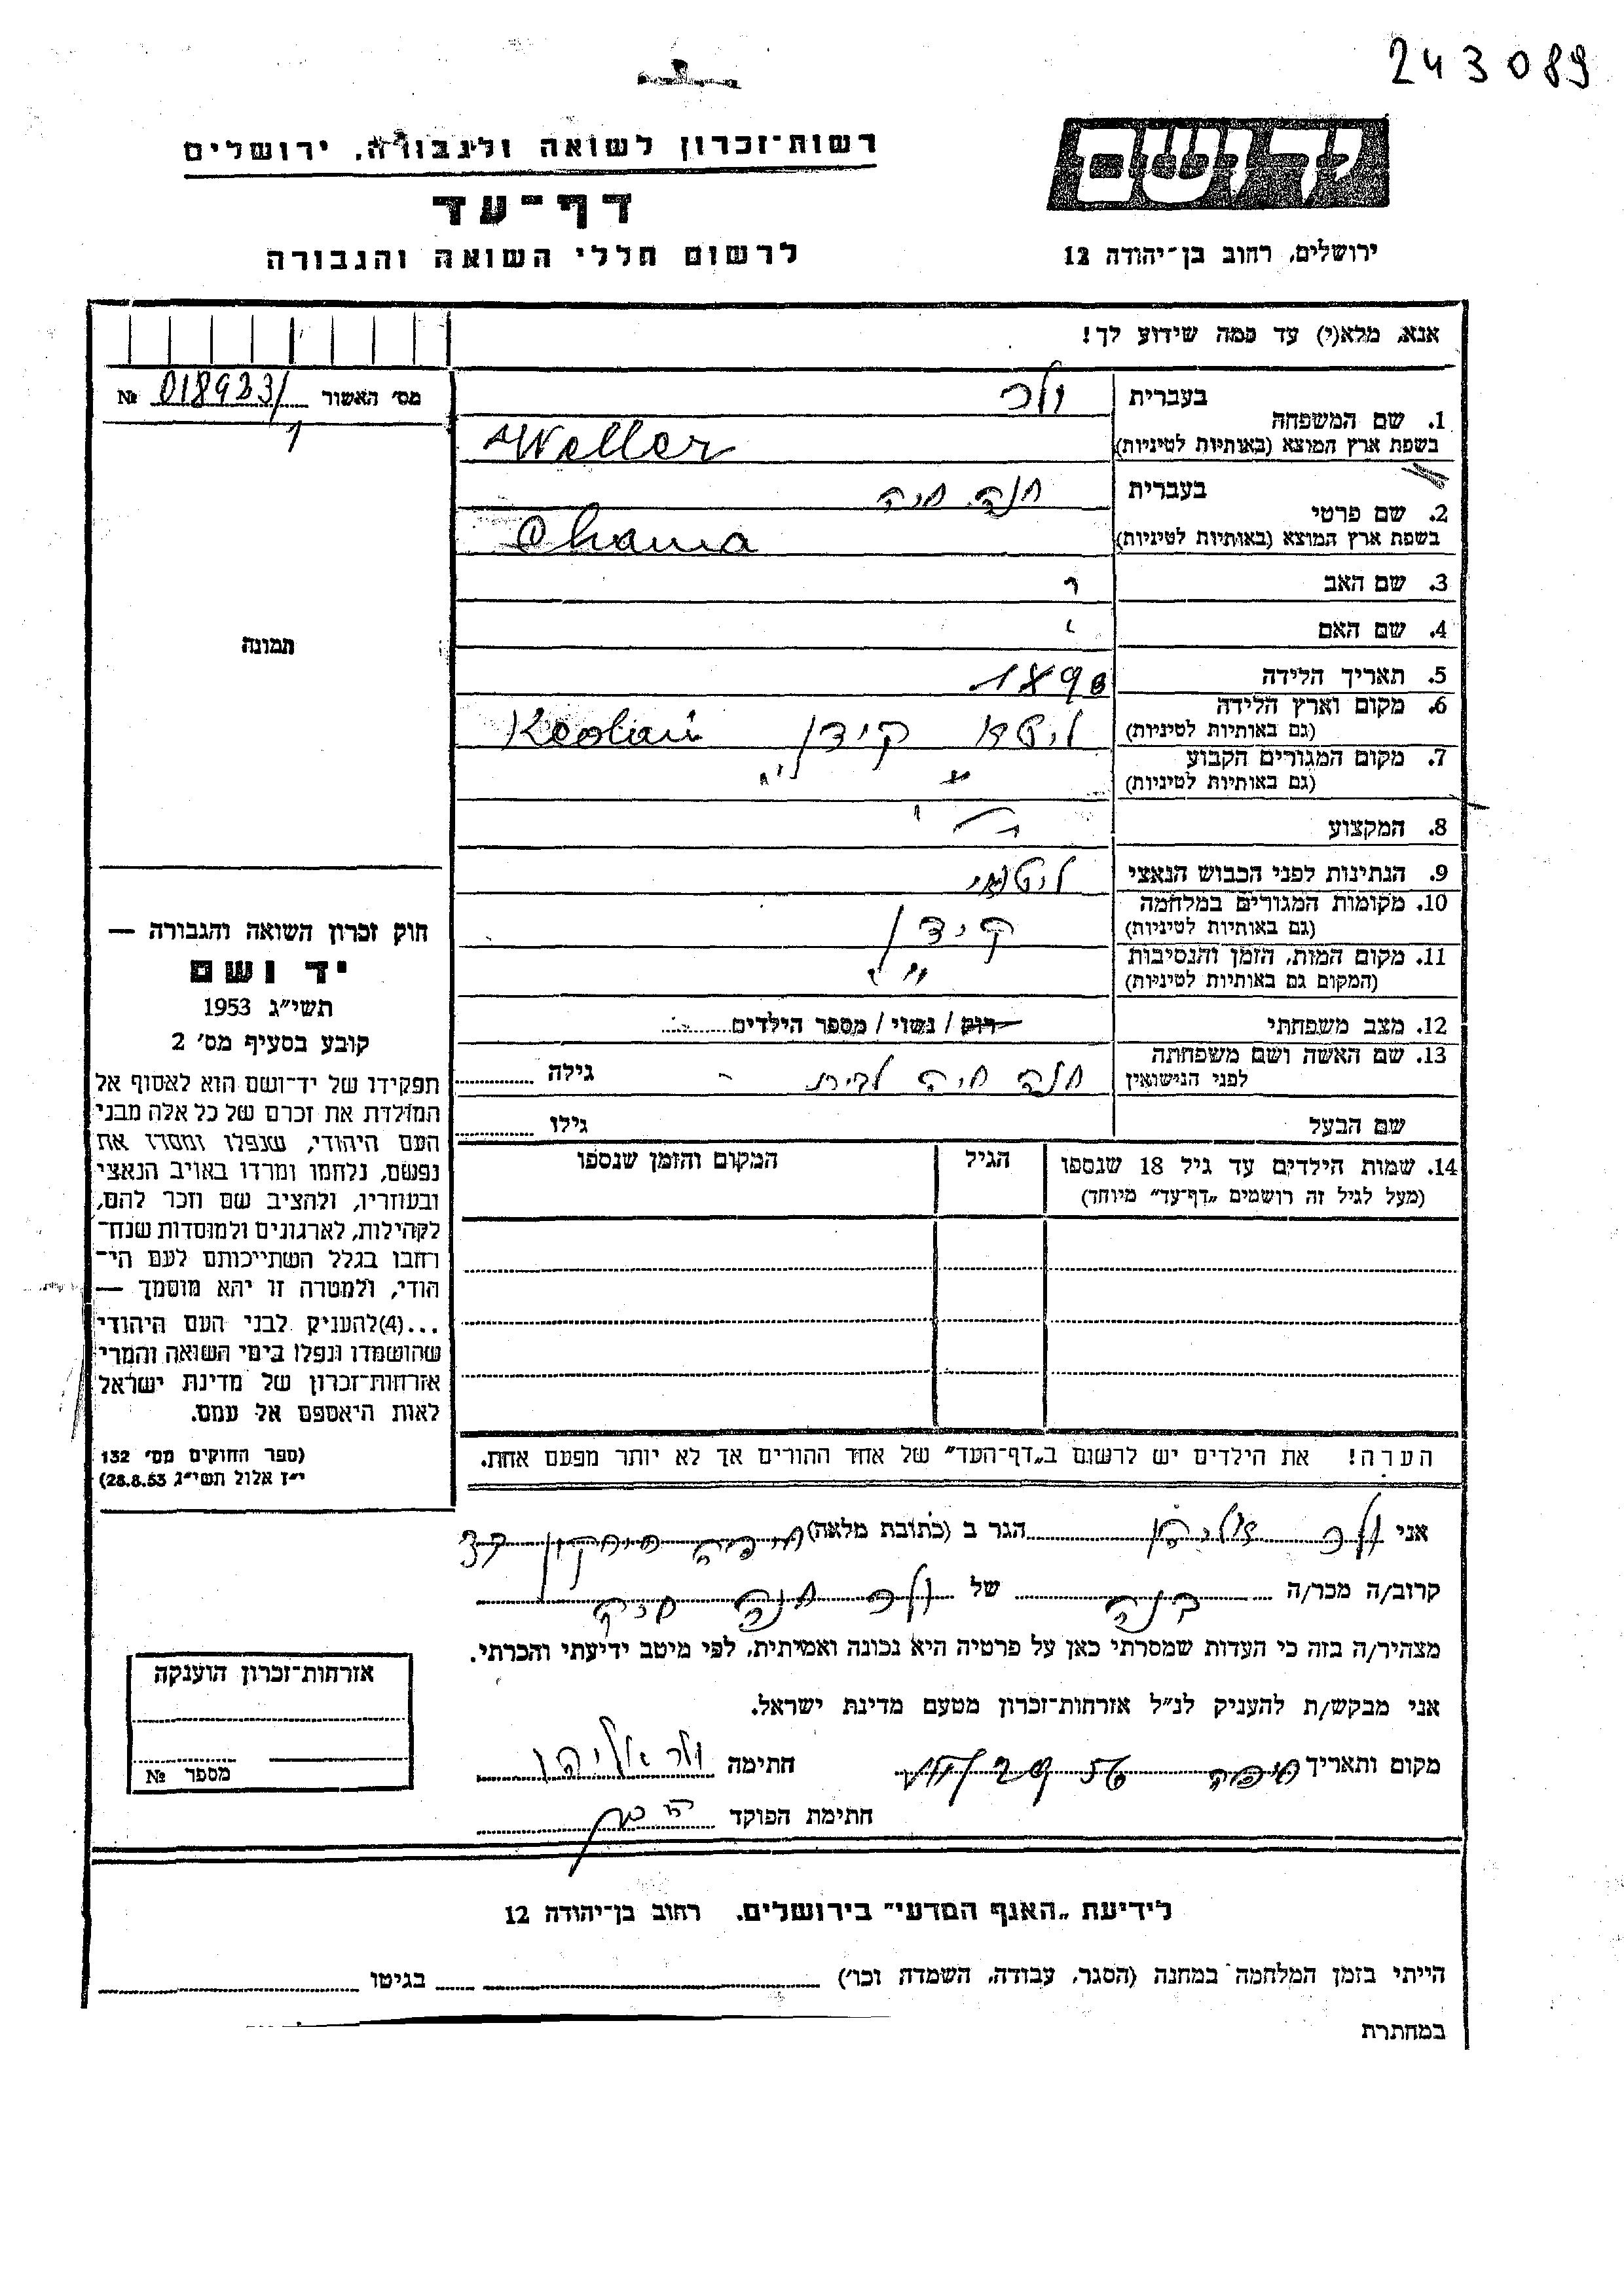 243089
רשות־זכרון לשואה ולגבורה, ירושלים
דף־עד
לרשום חללי השואה והגבורה
יד ושם
ירושלים, רחוב בן־יהודה 12
אנא, מלא(י) עד כמה שידוע לך!
מס' האשור 018923/ №
1
1. שם המשפחה
בעברית ולר
בשפת ארץ המוצא (באותיות לטיניות) Weller
2. שם פרטי
בעברית חנה חיה
בשפת ארץ המוצא (באותיות לטיניות) Chana
3. שם האב
4. שם האם
5. תאריך הלידה 1890
6. מקום וארץ הלידה
(גם באותיות לטיניות) ליטא קידן
7. מקום המגורים הקבוע
(גם באותיות לטיניות)
8. המקצוע
9. הנתינות לפני הכבוש הנאצי ליטאי
10. מקומות המגורים במלחמה
(גם באותיות לטיניות) קידן
11. מקום המות, הזמן והנסיבות
(המקום גם באותיות לטיניות)
12. מצב משפחתי רווק / נשוי / מספר הילדים
13. שם האשה ושם משפחתה
לפני הנישואין חנה חיה לבית - גילה
שם הבעל גילו
14. שמות הילדים עד גיל 18 שנספו
(מעל לגיל זה רושמים „דף־עד" מיוחד)
הגיל
המקום והזמן שנספו
הערה! את הילדים יש לרשום ב„דף־העד" של אחד ההורים אך לא יותר מפעם אחת.
תמונה
חוק זכרון השואה והגבורה —
יד ושם
תשי"ג 1953
קובע בסעיף מס' 2
תפקידו של יד־ושם הוא לאסוף אל
המולדת את זכרם של כל אלה מבני
העם היהודי, שנפלו ומסרו את
נפשם, נלחמו ומרדו באויב הנאצי
ובעוזריו, ולהציב שם וזכר להם,
לקהילות, לארגונים ולמוסדות שנח־
רחבו בגלל השתייכותם לעם הי־
הודי, ולמטרה זו יהא מוסמך —
...(4)להעניק לבני העם היהודי
שהושמדו ונפלו בימי השואה והמרי
אזרחות־זכרון של מדינת ישראל
לאות היאספם אל עמם.
(ספר החוקים מס' 132
י"ז אלול תשי"ג 28.8.53)
אני ולר הגר ב (כתובת מלאה) חיפה
קרוב/ה מכר/ה בנה של ולר חנה חיה
מצהיר/ה בזה כי העדות שמסרתי כאן על פרטיה היא נכונה ואמיתית, לפי מיטב ידיעתי והכרתי.
אני מבקש/ת להעניק לנ"ל אזרחות־זכרון מטעם מדינת ישראל.
מקום ותאריך חיפה חתימה ולר אליהו
חתימת הפוקד
אזרחות־זכרון הוענקה
מספר №
לידיעת „האגף המדעי" בירושלים, רחוב בן־יהודה 12
הייתי בזמן המלחמה במחנה (הסגר, עבודה, השמדה וכו') בגיטו
במחתרת